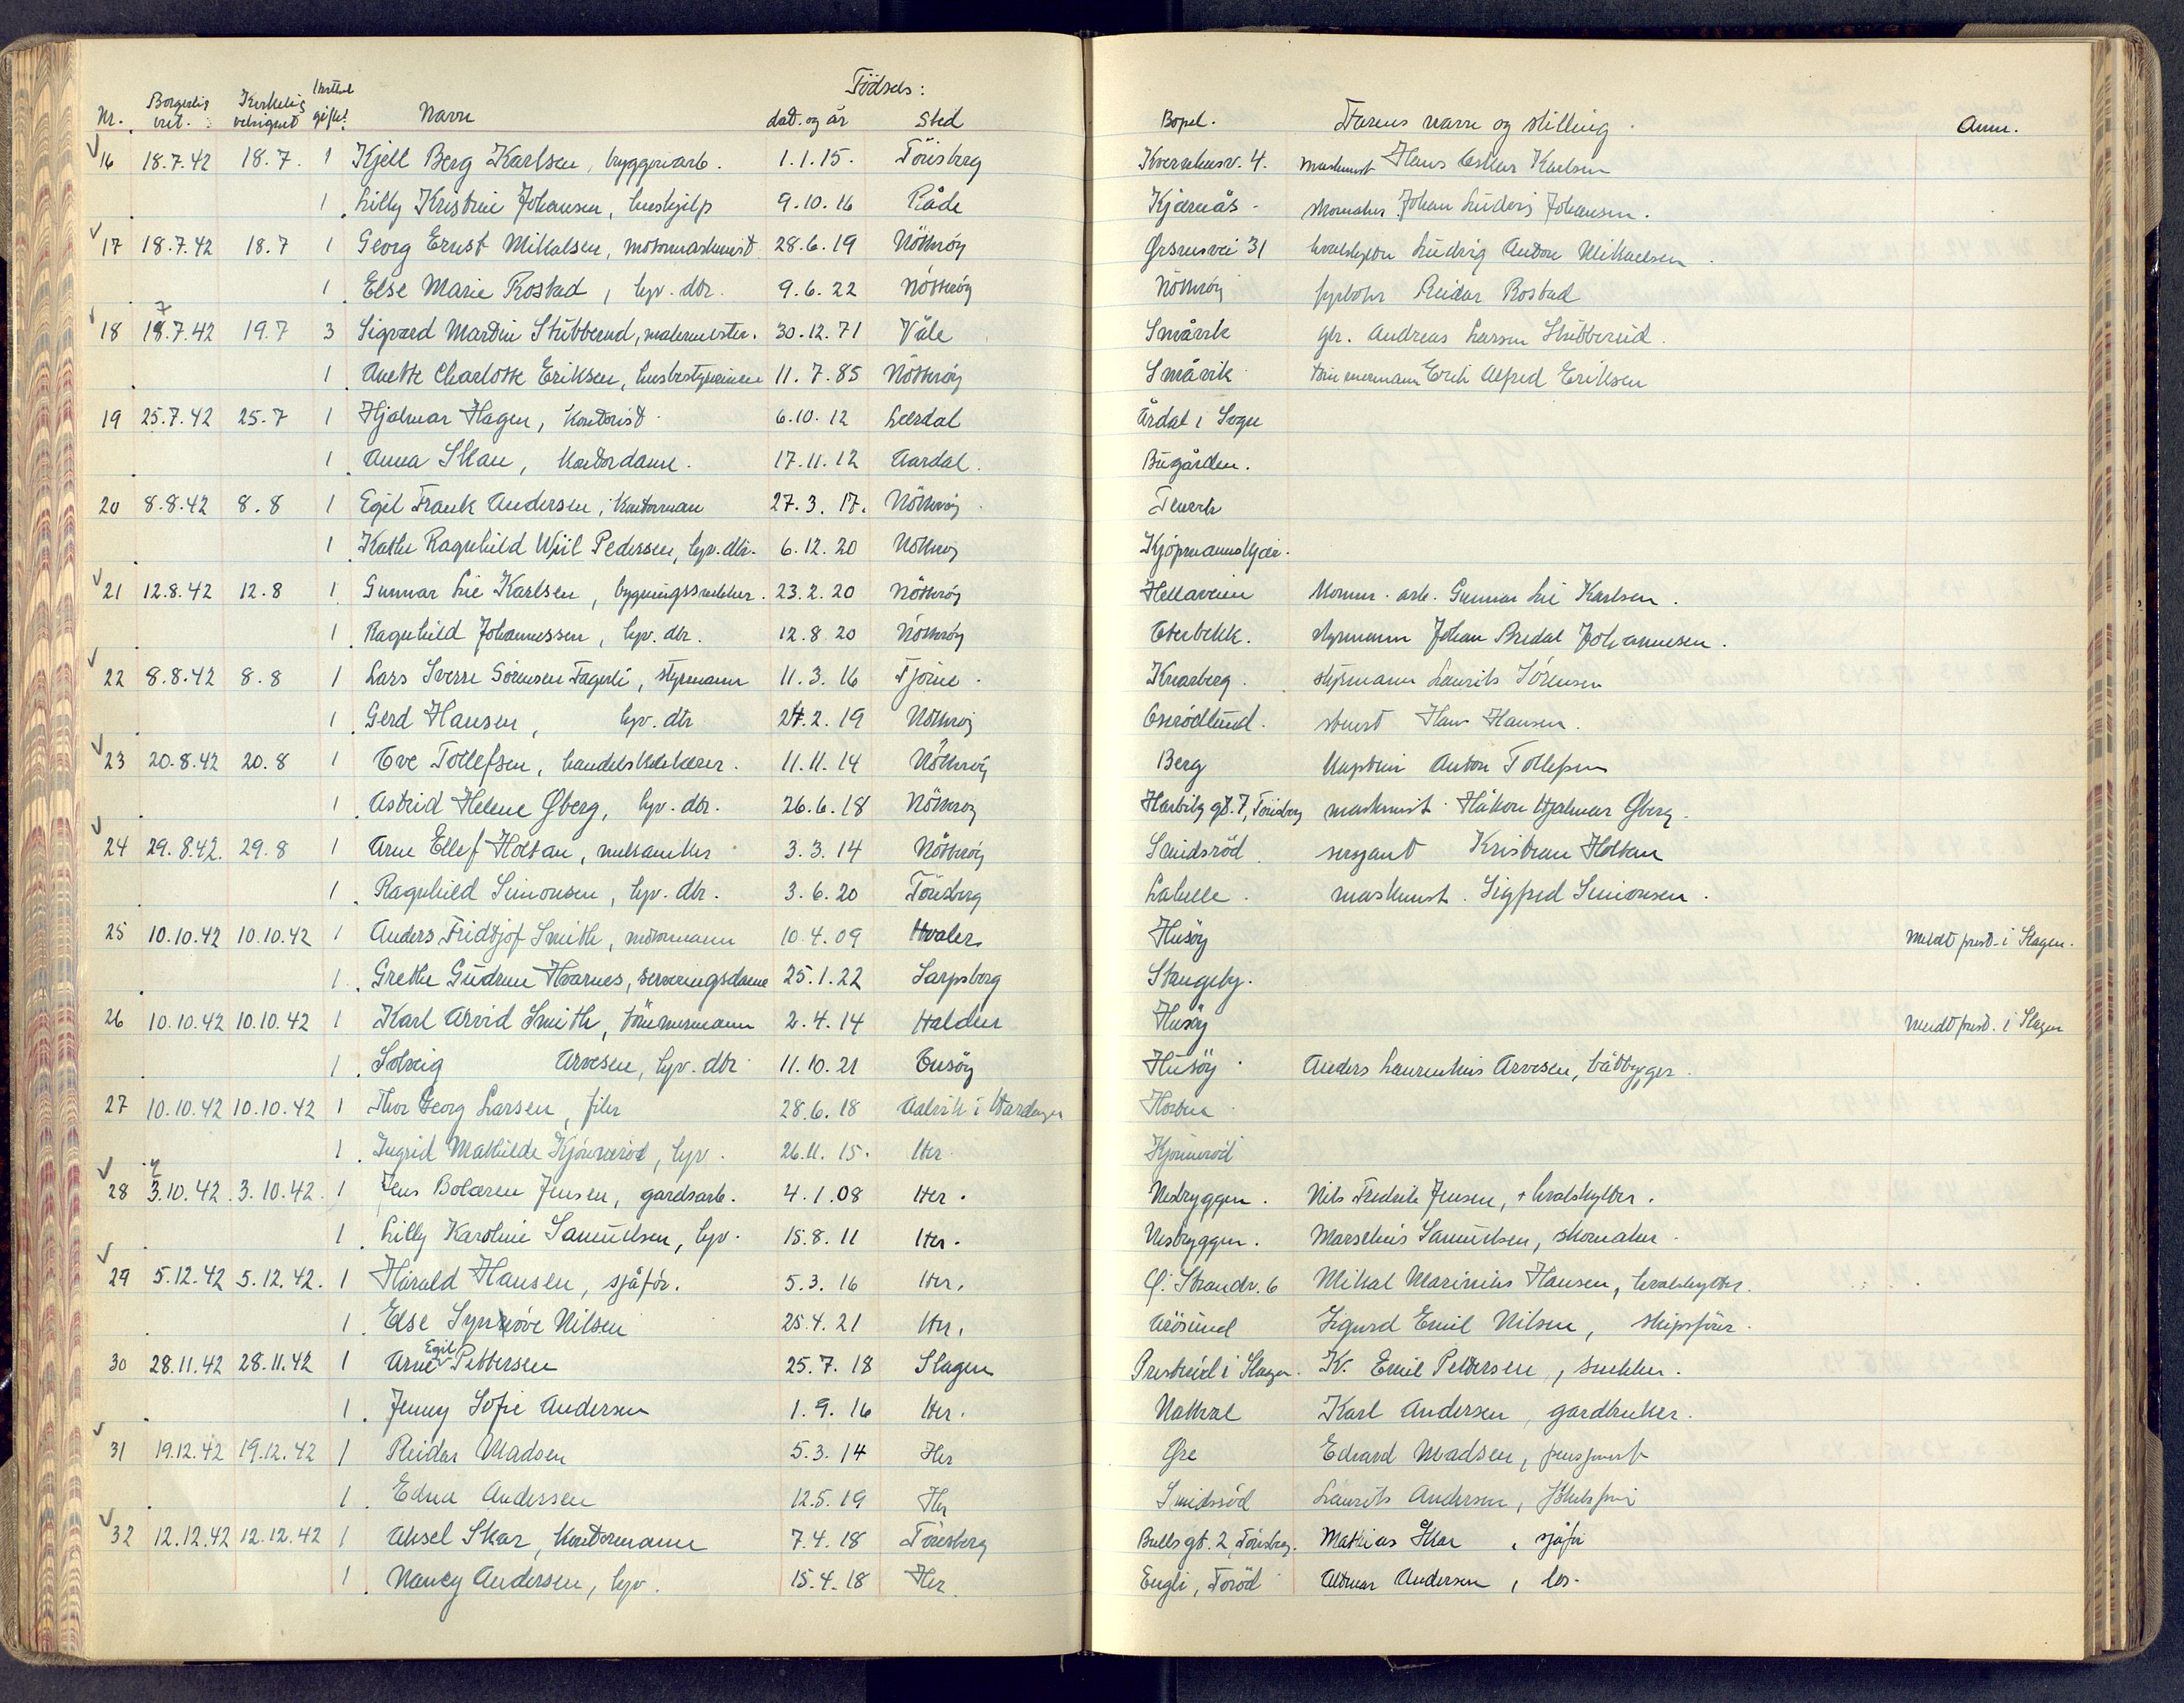 Födsels:
Nr. Borgerlig viet. Kirkelig velsignet gift? Navn dat. og år Sted Bopel. Farens navn og stilling. Anm.
16 18.7.42 18.7. 1 Kjell Berg Karlsen, bryggeriarb. 1.1.15. Tönsberg Kvernhusv. 4. maskinist Hans Oskar Karlsen
1 Lilly Kristine Johansen, hushjelp 9.10.16 Råde Kjærnås skomaker Johan Ludvig Johansen.
17 18.7.42 18.7 1 Georg Ernst Mikalsen, motormaskinist 28.6.19 Nötteröy Ørsnesvei 31 hvalskytter Ludvig Anton Mikaelsen.
1 Else Marie Rostad, hjv. dtr. 9.6.22 Nötteröy Nötteröy fyrböter Reidar Rostad
18 18.7.42 19.7 3 Sigvard Martin Stubberud, malermester. 30.12.71 Våle Småvik gbr. Andreas Larsen Stubberud.
1 Anette Charlotte Eriksen, husbestyrerinne 11.7.85 Nötteröy Småvik tömmermann Erik Alfred Eriksen
19 25.7.42 25.7 1 Hjalmar Hagen, kontorist 6.10.12 Lærdal Årdal i Sogn
1 Anna Skau, kontordame. 17.11.12 Aardal. Bugården.
20 8.8.42 8.8 1 Egil Frank Andersen, kontorman 27.3.17. Nötteröy
1 Kathe Ragnhild Wiil Pedersen, hjv. dtr. 6.12.20 Nötteröy Kjöpmannskjær.
21 12.8.42 12.8 1 Gunnar Lie Karlsen, bygningssnekker. 23.2.20 Nötteröy Hellaveien komm. arb. Gunnar Lie Karlsen.
1 Ragnhild Johannessen, hjv. dtr. 12.8.20 Nötteröy Oterbekk. styrmann Johan Bredal Johannesen.
22 8.8.42 8.8 1 Lars Sverre Sörensen Fagerli, styrmann 11.3.16 Tjöme. Knarberg. styrmann Laurits Sörensen
1 Gerd Hansen, hjv. dtr 24.2.19 Nötteröy Oserödlund. stuert Hans Hansen.
23 20.8.42 20.8 1 Ove Tollefsen, handelsbetjener. 11.11.14 Nötteröy Berg kaptein Anton Tollefsen
1 Astrid Helene Øberg, hjv. dtr. 26.6.18 Nötteröy Harbitz gt. 7, Tönsberg maskinist Håkon Hjalmar Øberg.
24 29.8.42. 29.8 1 Arne Ellef Holtan, mekaniker 3.3.14 Nötteröy Smidsröd sersjant Kristian Holtan
1 Ragnhild Simonsen, hjv. dtr. 3.6.20 Tönsberg Labelle. maskinist. Sigfred Simonsen.
25 10.10.42 10.10.42 1 Anders Fridtjof Smith, motormann 10.4.09 Hvaler Husöy meldt prest. i Slagen.
1 Grethe Gudrun Hvarnes, serveringsdame 25.1.22 Sarpsborg Stangeby.
26 10.10.42 10.10.42 1 Karl Arvid Smith, tömmermann 2.4.14 Halden Husöy meldt prest. i Slagen
1 Solveig Arvesen, hjv. dtr 11.10.21 Husöy Anders Laurentius Arvesen, båtbygger.
27 10.10.42 10.10.42 1 Thor Georg Larsen, filer 28.6.18 Aalvik i Hardanger Horten
1 Ingrid Mathilde Kjönneröd, hjv. 26.11.15. Her. Kjönneröd
28 3.10.42. 3.10.42. 1 Jens Bolæren Jensen, gardsarb. 4.1.08 Her. Nesbryggen. Nils Fredrik Jensen, + hvalskytter.
1 Lilly Karoline Samuelsen, hjv. 15.8.11 Her. Nesbryggen. Marselius Samuelsen, skomaker.
29 5.12.42 5.12.42. 1 Harald Hansen, sjåför. 5.3.16 Her. Ö. Strandv. 6 Mikal Marinius Hansen, hvalskytter.
1 Else Synnöve Nilsen 25.4.21 Her. Årösund Sigurd Emil Nilsen, skipsförer.
30 28.11.42 28.11.42 1 Arne Egil Pettersen 25.7.18 Slagen Presteröd i Slagen. K. Emil Pettersen, snekker.
1 Jenny Sofie Andersen 1.9.16 Her. Nakkal Karl Andersen, gardbruker.
31 19.12.42 19.12.42 1 Reidar Madsen 5.3.14 Her Øre Edvard Madsen, pensjonist
1 Edna Andersen 12.5.19 Her Smidsröd Laurits Andersen,
32 12.12.42 12.12.42 1 Aksel Skar, kontormann 7.4.18 Tönsberg Bulls gt. 2, Tönsberg. Mathias Skar, sjåför
1 Nancy Andersen, hjv. 15.4.18 Her. Engli, Toröd Andersen, los.